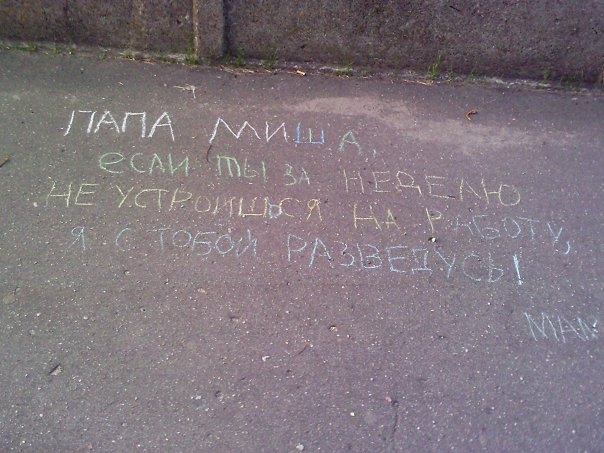 ПАПА МИША,
если ты за неделю
не устроишься на работу,
я с тобой разведусь!